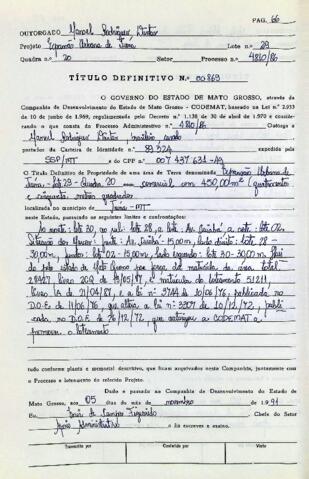 PAG. 66
OUTORGADO Manoel Rodrigues Dantas
Projeto Expansão Urbana de Juína Lote n.º 29
Quadra n.º 20 Setor Processo n.º 4810/86
TÍTULO DEFINITIVO N.º 00869
O GOVERNO DO ESTADO DE MATO GROSSO, através da
Companhia de Desenvolvimento do Estado de Mato Grosso - CODEMAT, baseado na Lei n.º 2.933
de 10 de junho de 1969, regulamentada pelo Decreto n.º 1.138 de 30 de abril de 1970 e conside-
rando o que consta do Processo Administrativo n.º 4810/86 Outorga a
Manoel Rodrigues Dantas brasileiro casado
portador da Carteira de Identidade n.º 89.324 expedida pela
SSP/MT e do CPF n.º 007 487 631-49
O Título Definitivo de Propriedade de uma área de Terra denominada Expansão Urbana de
Juína - Lote 29 - Quadra 20 comercial com 450,00 m² (quatrocentos
e cinquenta metros quadrados
localizada no município de Juína - MT
neste Estado, passando os seguintes limites e confrontações:
Ao norte: lote 30, ao sul: lote 28, a leste: Av. Cuiabá, a oeste: lote 02.
frente: Av. Cuiabá - 15,00m, lado direito: lote 28 -
30,00m, fundos: lote 02 - 15,00m, lado esquerdo: lote 30 - 30,00m.
pelo estado de Mato Grosso por força da matrícula da área total
28427 livro 2CQ de 15/05/87, e matrícula do loteamento 51.211,
livro 1A de 21/04/87, e a lei nº 3744 de 10/06/76, publicada no
D.O.E. de 11/06/76, que altera a lei nº 3307 de 10/12/72, publi
cada, no D.O.E. de 26/12/72, que autorizou a CODEMAT a
promover o loteamento
tudo conforme planta e memorial descritivo, que foram arquivados nesta Companhia, juntamente com
o Processo a loteamento do referido Projeto.
Dado e passado na Companhia de Desenvolvimento do Estado de
Mato Grosso, aos 05 dias do mês de novembro de 1.991
Eu, de Campos Figueiredo Chefe do Setor
Apoio Administrativo o fiz escrever e assino.
Transcrito por Conferido por Visto